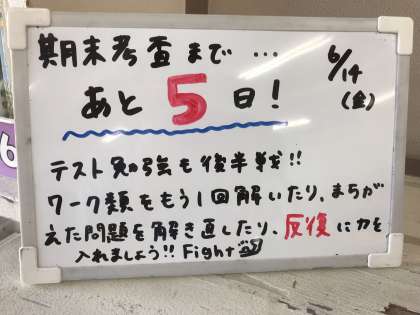 期末考査まで…
6/14
(金)
あと5日!
テスト勉強も後半戦!!
ワーク類をもう1回解いたり、まちが
えた問題を解き直したり、反復に力を
入れましょう!! Fight
6